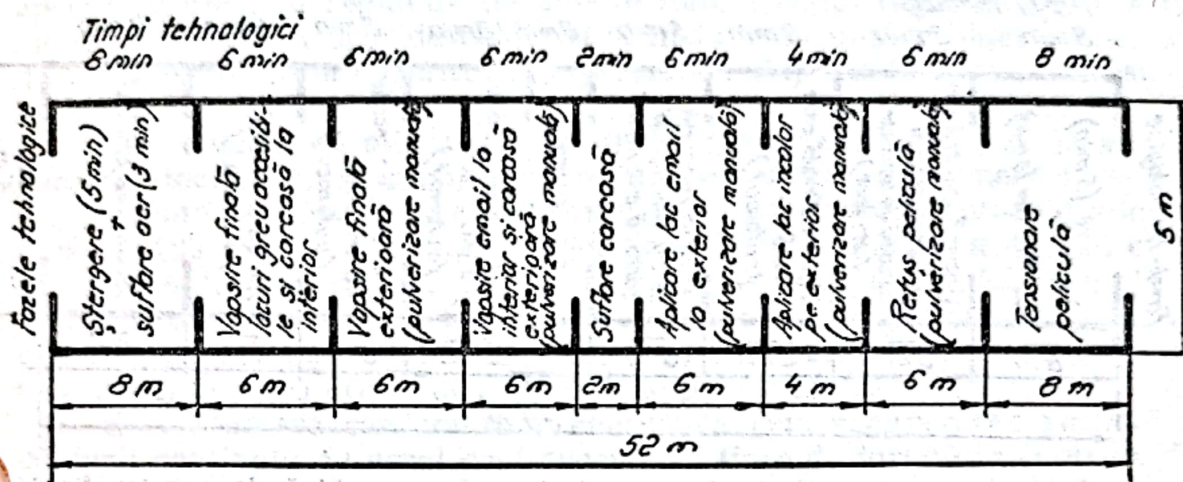 Timpi tehnologici
8 min 6 min 6 min 6 min 2 min 6 min 4 min 6 min 8 min
Fazele tehnologice
Ștergere (5 min)
+
suflare aer (3 min)
Vopsire finală
locuri greu accesibi-
le și carcasă la
interior
Vopsire finală
exterioară
(pulverizare manuală)
Vopsire email la
interior și carcasă
exterioară
(pulverizare manuală)
Suflare carcasă
Aplicare lac email
la exterior
(pulverizare manuală)
Aplicare lac incolor
pe exterior
(pulverizare manuală)
Retuș peliculă
(pulverizare manuală)
Tensionare
peliculă
5 m
8 m 6 m 6 m 6 m 2 m 6 m 4 m 6 m 8 m
52 m